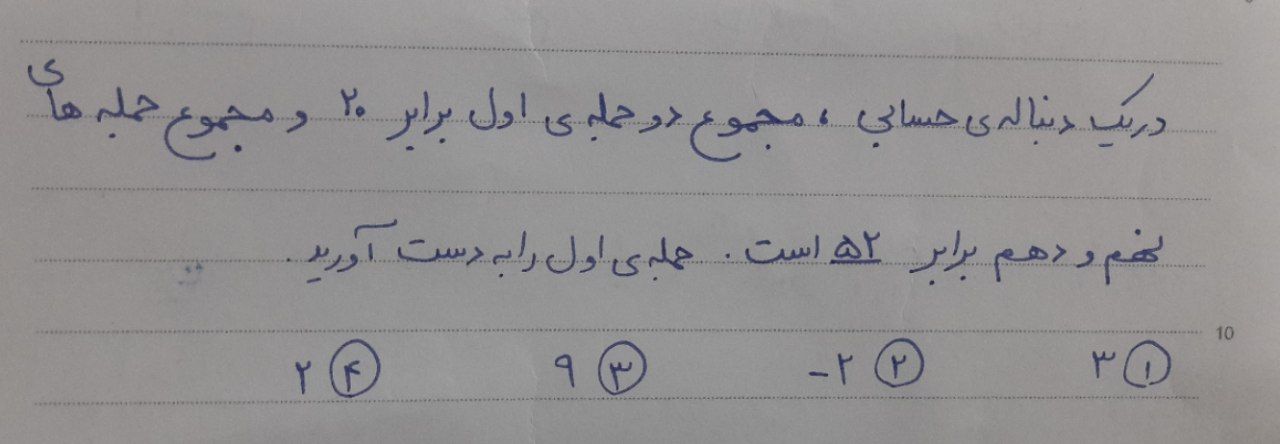 در یک دنباله‌ی حسابی ، مجموع دو جمله‌ی اول برابر ۲۰ و مجموع جمله های
نهم و دهم برابر ۵۲ است . جمله‌ی اول را به دست آورید .
10
۱) ۳ ۲) -۲ ۳) ۹ ۴) ۲